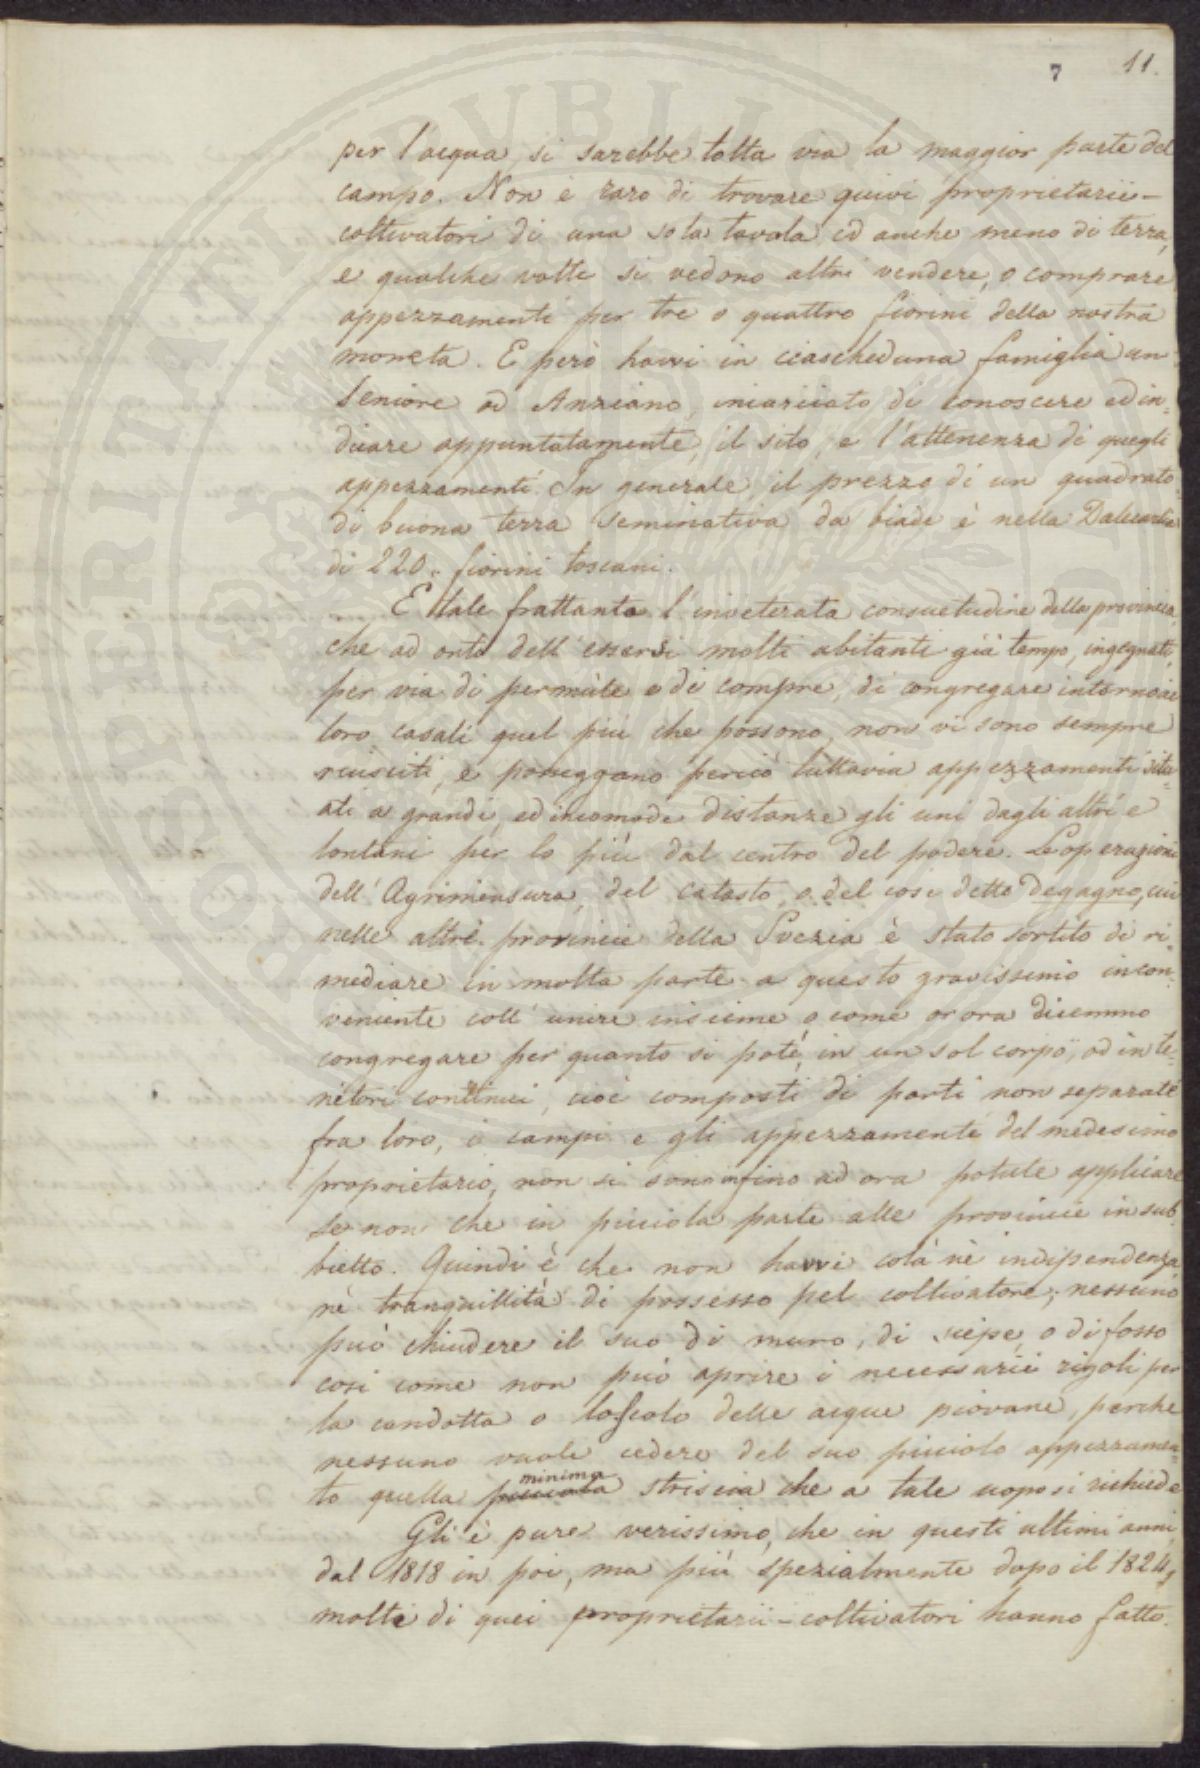 7 11.
per l'acqua, si sarebbe tolta via la maggior parte del
campo. Non è raro di trovare quivi proprietarii-
coltivatori di una sola tavola ed anche meno di terra,
e qualche volta si vedono altri vendere, o comprare
appezzamenti per tre o quattro fiorini della nostra
moneta. E però havvi in ciascheduna famiglia un
Seniore od Anziano, incaricato di conoscere ed in-
dicare appuntatamente, il sito, e l'attenenza di quegli
appezzamenti. In generale, il prezzo di un quadrato
di buona terra seminativa da biade è nella Dalecarlia
di 220. fiorini toscani.
E tale frattanto l'inveterata consuetudine della provincia,
che ad onta dell'essersi molti abitanti già tempo, ingegnati,
per via di permute e di compre, di congregare intorno ai
loro casali quel più che possono, non vi sono sempre
riusciti, e posseggono perciò tuttavia appezzamenti situ-
ati a grandi, ed incomode distanze gli uni dagli altri e
lontani per lo più dal centro del podere. Le operazioni
dell'Agrimensura, del catasto, o del così detto Degagno, cui
nelle altre provincie della Svezia è stato sortito di ri-
mediare in molta parte a questo gravissimo incon-
veniente coll'unire insieme o come or ora dicemmo
congregare per quanto si potè, in un sol corpo, od in te-
nitori continui, cioè composti di parti non separate
fra loro, i campi e gli appezzamenti del medesimo
proprietario, non si sono infino ad ora potute applicare
se non che in picciola parte alle provincie in sub-
bietto. Quindi è che non havvi colà nè indipendenza
nè tranquillità di possesso pel coltivatore; nessuno
può chiudere il suo di muro, di siepe, o di fosso
così come non può aprire i necessarii rigoli per
la condotta o lo scolo delle acque piovane, perchè
nessuno vuole cedere del suo picciolo appezzamen-
minima
to quella picciola striscia che a tale uopo si richiede
Gli è pure verissimo, che in questi ultimi anni,
dal 1818 in poi, ma più spezialmente dopo il 1824,
molti di quei proprietarii-coltivatori hanno fatto